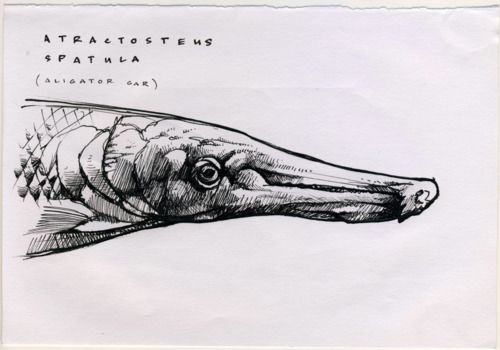 ATRACTOSTEUS
SPATULA
(ALIGATOR GAR)